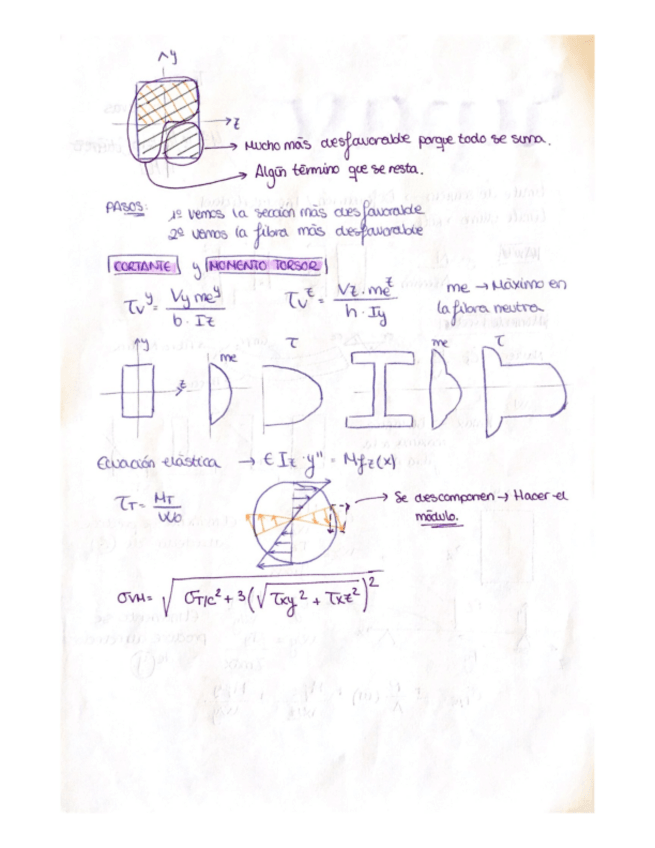 y
z
Mucho más desfavorable porque todo se suma.
Algún término que se resta.
PASOS: 1º vemos la sección más desfavorable
2º vemos la fibra más desfavorable
CORTANTE y MOMENTO TORSOR
τv^y = Vy me^y / b · Iz
τv^z = Vz · me^z / h · Iy
me → Máximo en
la fibra neutra
y
z
me
τ
me
τ
Ecuación elástica → E Iz · y'' = Mfz(x)
τT = MT / W0
Se descomponen → Hacer el
módulo.
σVM = √(σT/C² + 3(√(τxy² + τxz²))²)